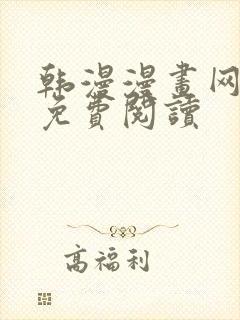 韩漫漫畫网
免費閱讀
高福利